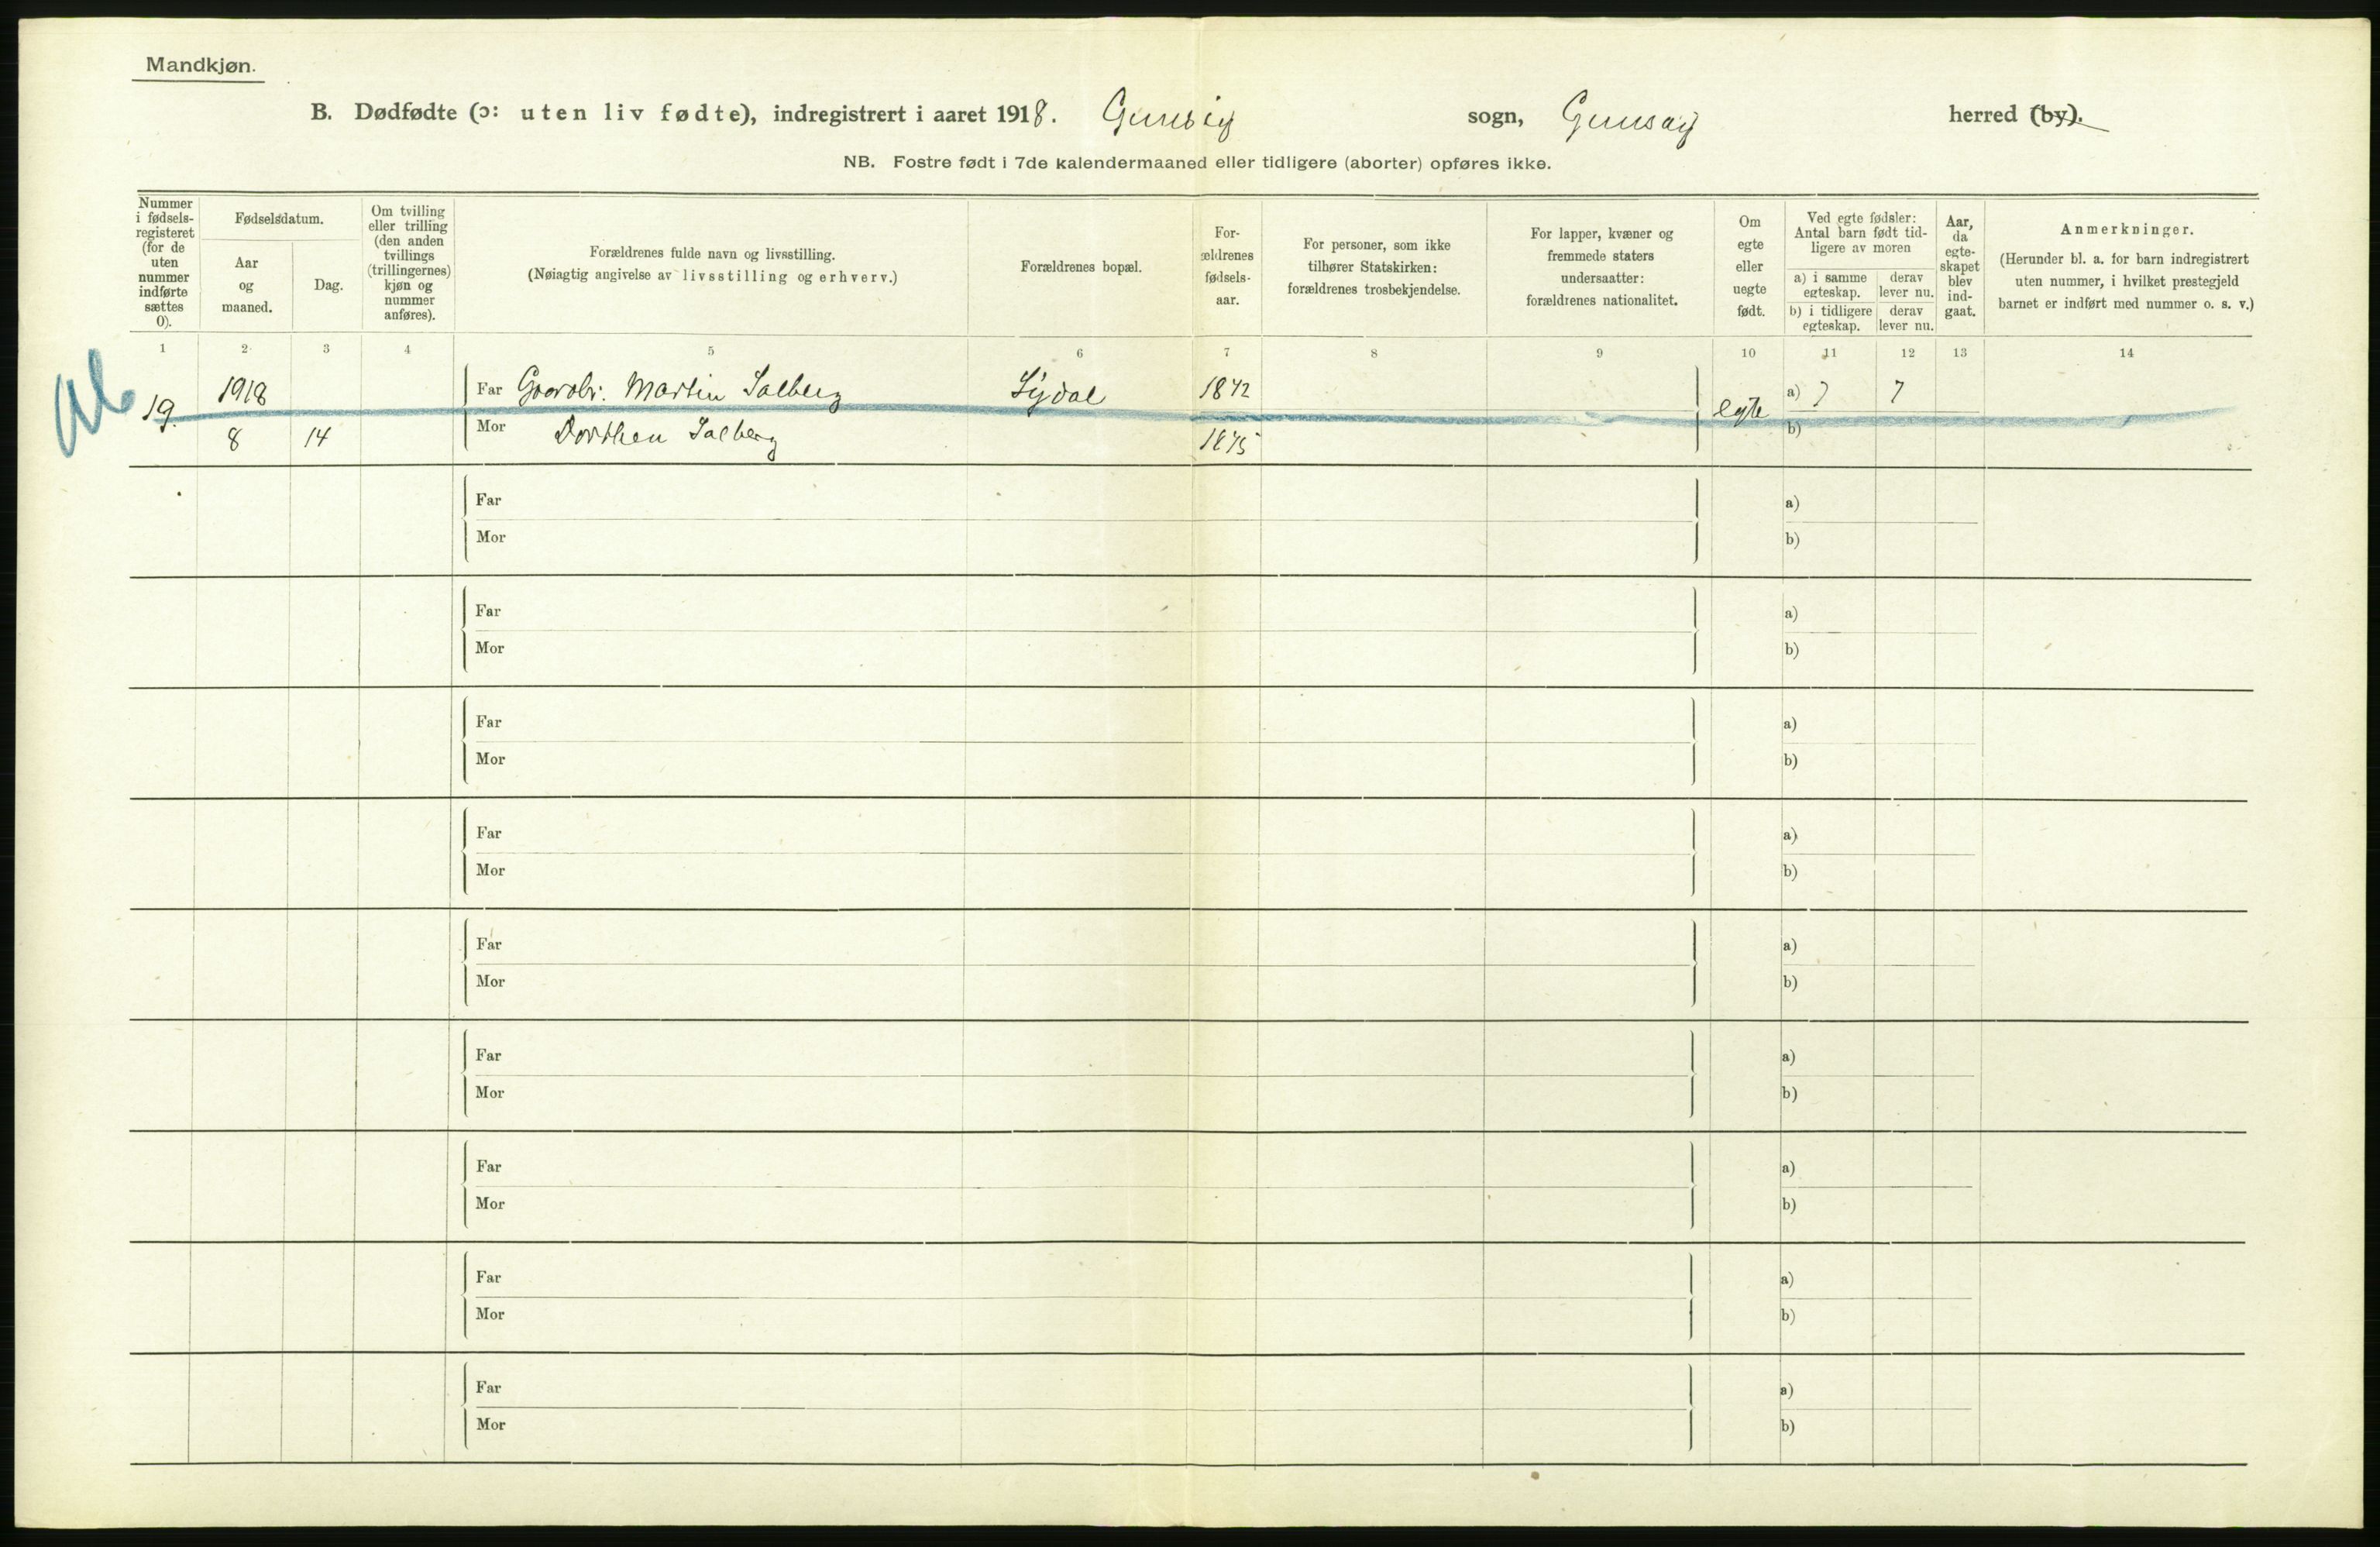 Mandkjøn.
B. Dødfødte (ɔ: uten liv fødte), indregistrert i aaret 1918. sogn, herred (by).
NB. Fostre født i 7de kalendermaaned eller tidligere (aborter) opføres ikke.
Nummer i fødsels-registeret (for de uten nummer indførte sættes 0).
Fødselsdatum.
Aar og maaned.
Dag.
Om tvilling eller trilling (den anden tvillings (trillingernes) kjøn og nummer anføres).
Forældrenes fulde navn og livsstilling.
(Nøiagtig angivelse av livsstilling og erhverv.)
Forældrenes bopæl.
For-ældrenes fødsels-aar.
For personer, som ikke tilhører Statskirken: forældrenes trosbekjendelse.
For lapper, kvæner og fremmede staters undersaatter: forældrenes nationalitet.
Om egte eller uegte født.
Ved egte fødsler: Antal barn født tid-ligere av moren
a) i samme egteskap.
derav lever nu.
b) i tidligere egteskap.
derav lever nu.
Aar, da egte-skapet blev ind-gaat.
Anmerkninger.
(Herunder bl. a. for barn indregistrert uten nummer, i hvilket prestegjeld barnet er indført med nummer o. s. v.)
1 2 3 4 5 6 7 8 9 10 11 12 13 14
19. 1918 Far Martin Salberg 1872 egte a) 7 7
8 14 Mor Dorthea Salberg 1875 b)
Far a)
Mor b)
Far a)
Mor b)
Far a)
Mor b)
Far a)
Mor b)
Far a)
Mor b)
Far a)
Mor b)
Far a)
Mor b)
Far a)
Mor b)
Far a)
Mor b)